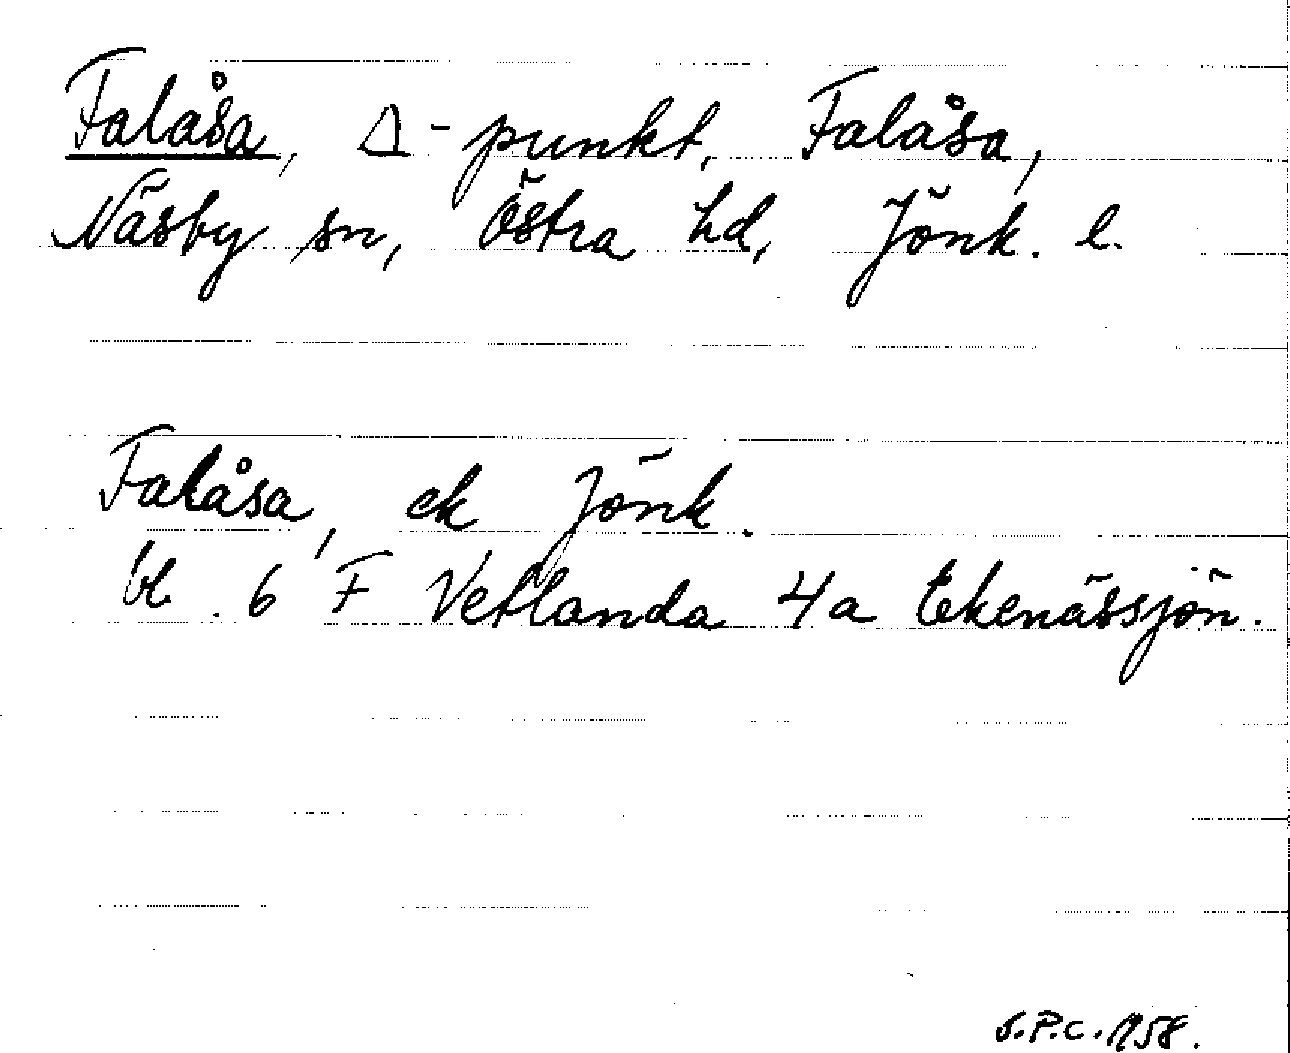 Falåsa, Δ-punkt, Falåsa,
Näsby sn, Östra hd, Jönk. l.
Falåsa, ek Jönk.
bl. 6 F Vetlanda 4a Ekenässjön.
S.P.C. 1958.